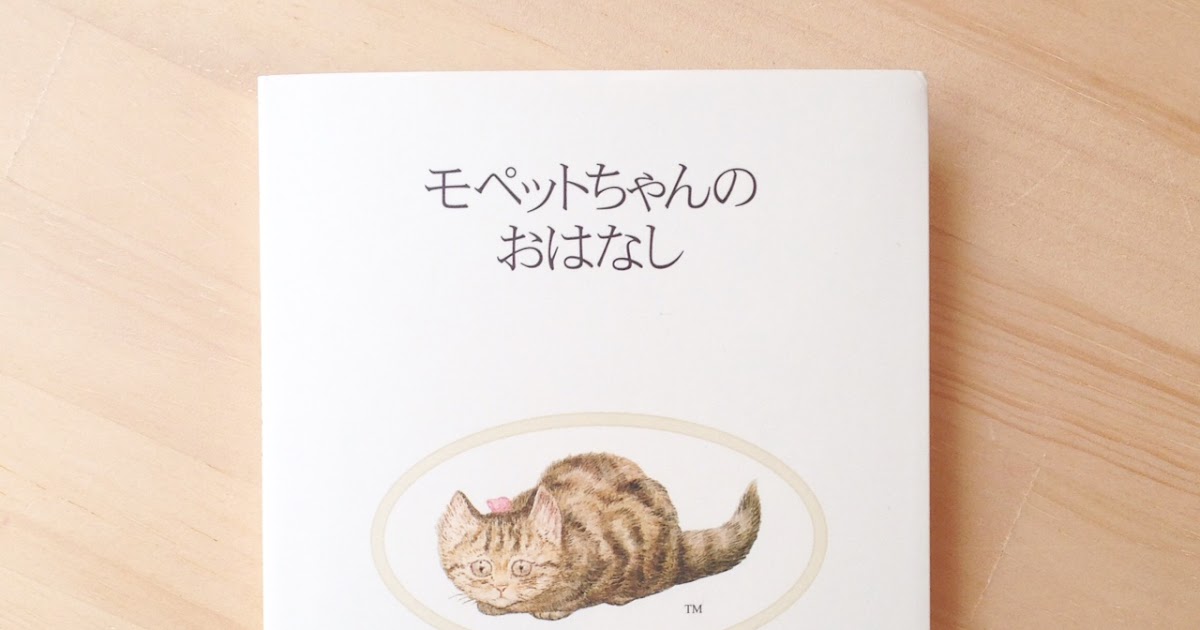 モペットちゃんの
おはなし
TM